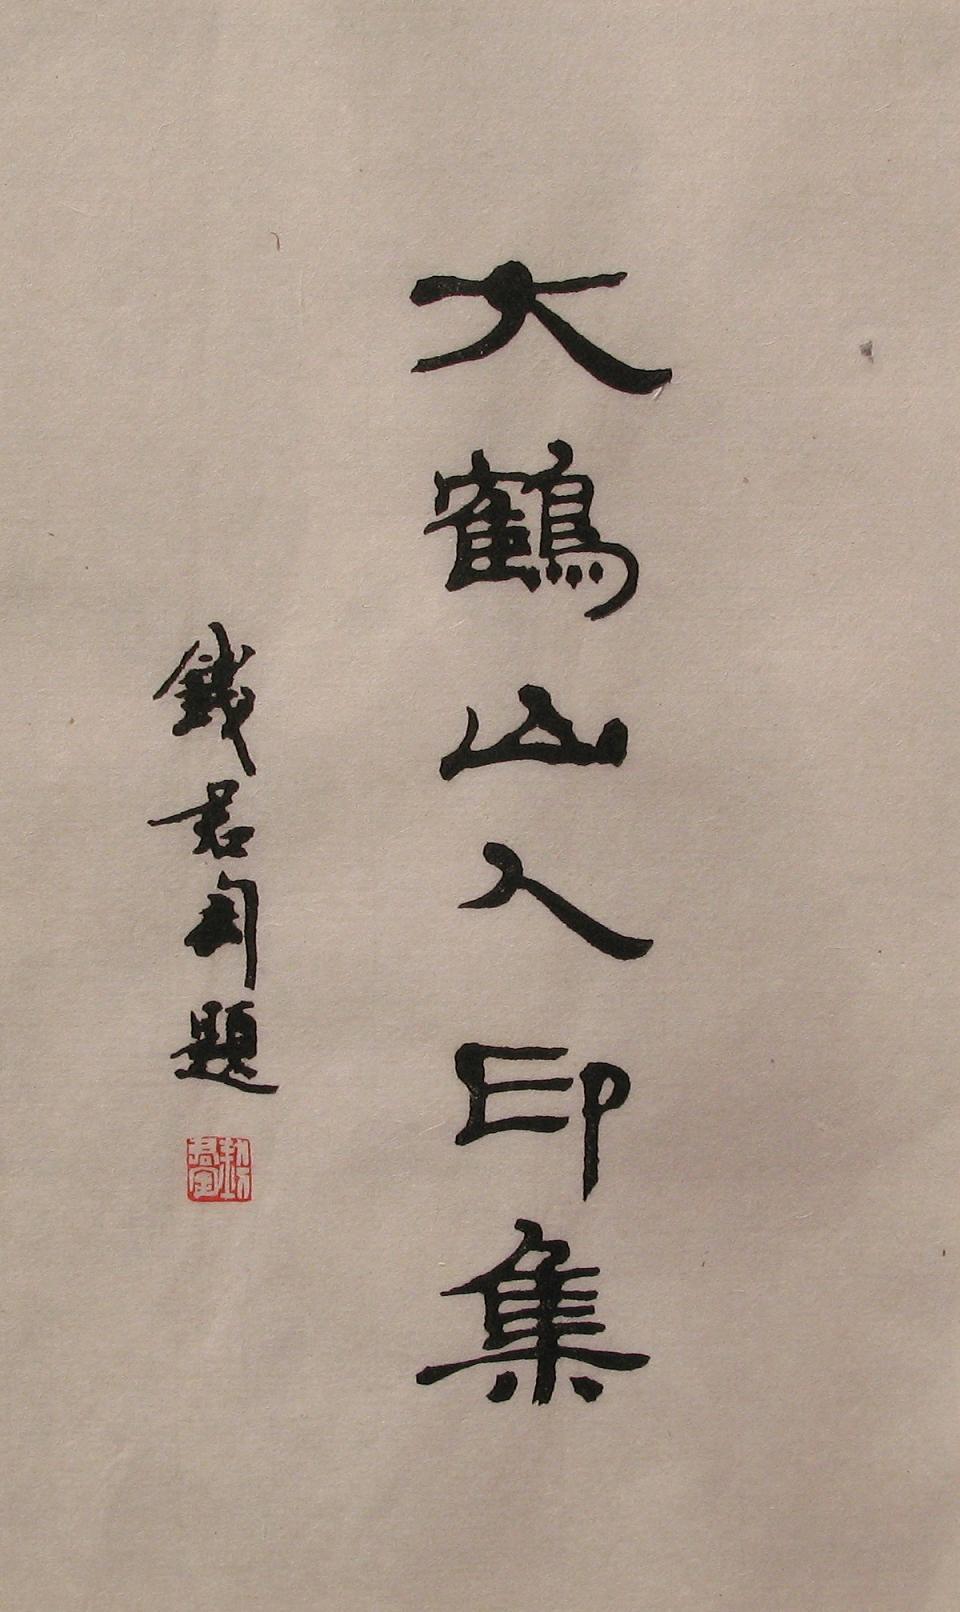 大鶴山人印集
錢君匋題